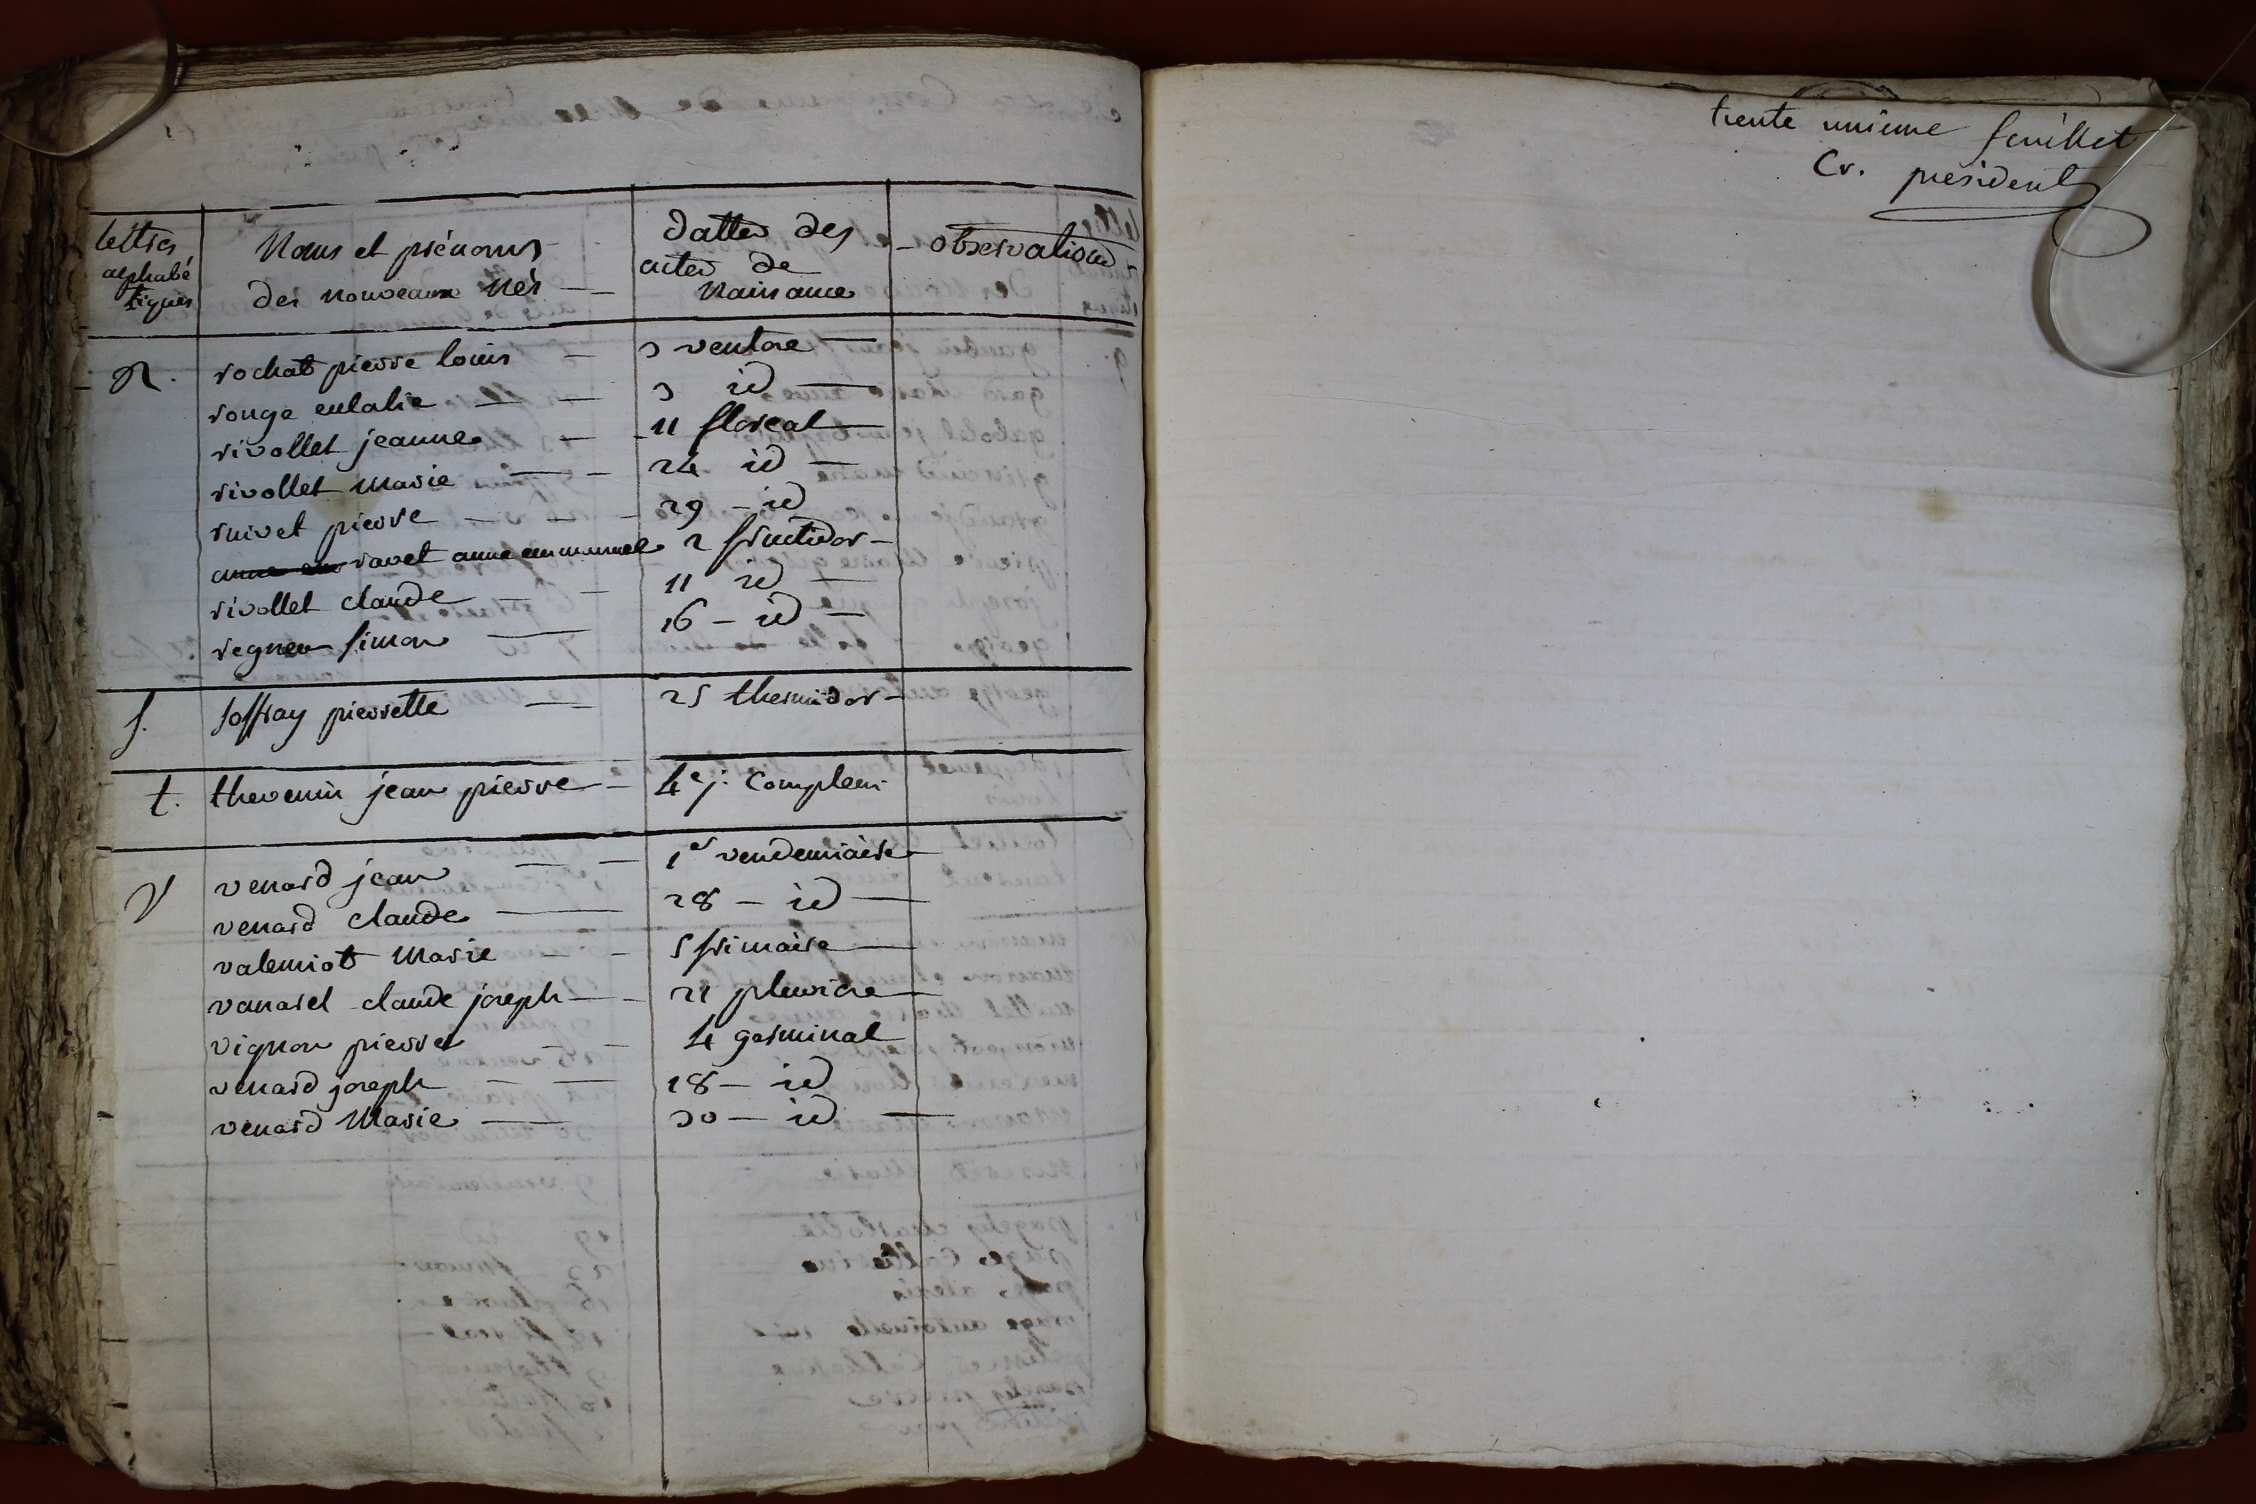 lettres
alphabé
tiques
Noms et prénoms
des nouveaux nés
dattes des
actes de
naissance
observations
R. rochat pierre louis 3 ventose
rouge eulalie 3 id
rivollet jeanne 11 floreal
rivollet marie 24 id
ruivet pierre 29 id
ravet anne emmanuel 2 fructidor
rivollet claude 11 id
regneu simon 16 id
s. soffray pierrette 25 thermidor
t. thevenin jean pierre 4e j. complem
V venard jean 1er vendemiaire
venard claude 28 id
valemiot marie 5 frimaire
vanarel claude joseph 21 pluviose
vignon pierre 4 germinal
venard joseph 18 id
venard marie 30 id
trente unieme feuillet
Cr. president